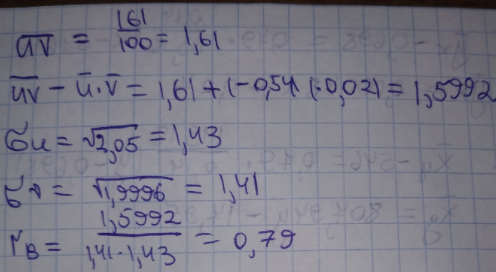 uv = 161/100 = 1,61
uv - ū·v̄ = 1,61 + (-0,54)(·0,02) = 1,5992
σu = √2,05 = 1,43
σv = √1,9996 = 1,41
rв = 1,5992/1,41·1,43 = 0,79